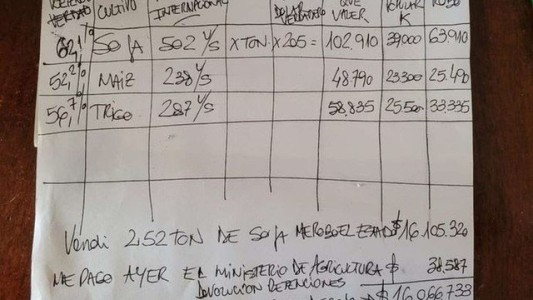 CULTIVO INTERNACIONAL DOLAR VERDADERO QUE VALER K ROBO
62,1% SOJA 502 U/S X TON X 205 = 102.910 39000 63.910
52,2% MAIZ 238 U/S 48790 23300 25.490
56,7% TRIGO 287 U/S 58.835 25500 33.335
Vendi 252 TON DE SOJA ME ROBO EL ESTADO $ 16.105.320
ME PAGO AYER EL MINISTERIO DE AGRICULTURA $ 38.587
DEVOLUCION RETENCIONES
$ 16.066.733